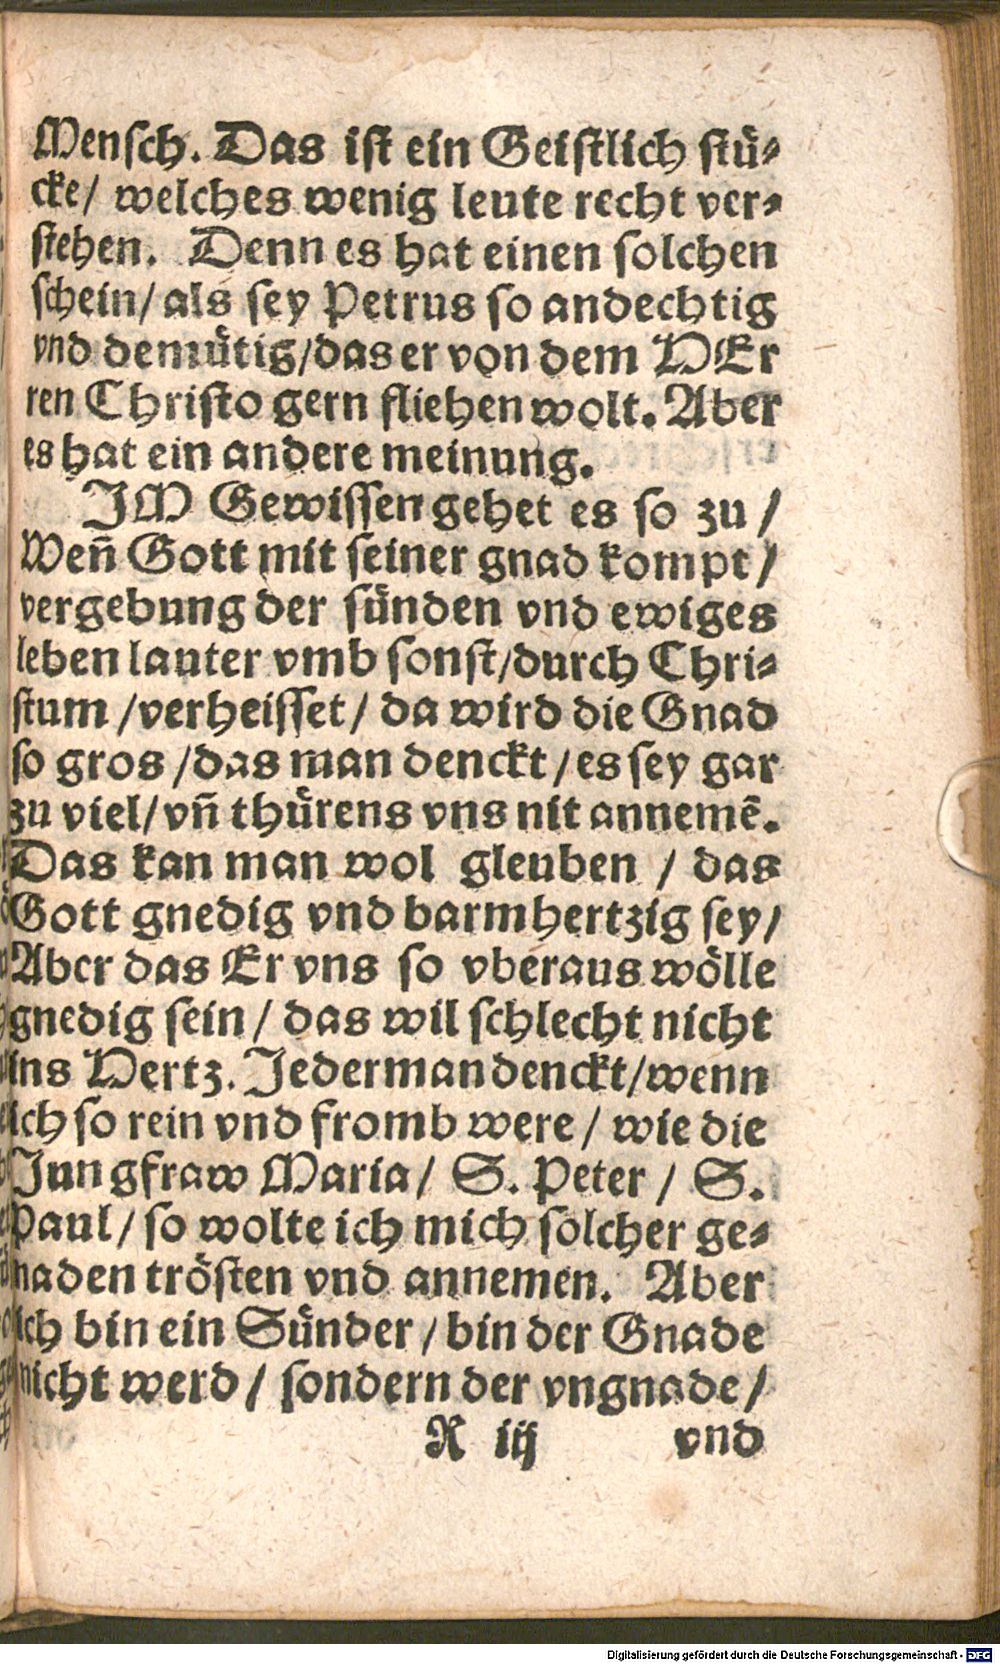 Mensch. Das ist ein Geistlich stuͤ⸗
cke/ welches wenig leute recht ver⸗
stehen. Denn es hat einen solchen
schein/ als sey Petrus so andechtig
vnd demuͤtig/das er von dem HEr
ren Christo gern fliehen wolt. Aber
es hat ein andere meinung.
JM Gewissen gehet es so zu /
Weñ Gott mit seiner gnad kompt/
vergebung der suͤnden vnd ewiges
leben lauter vmb sonst/durch Chri⸗
stum /verheisset/ da wird die Gnad
so gros /das man denckt/es sey gar
zu viel/ vñ thuͤrens vns nit annemẽ.
Das kan man wol gleuben / das
Gott gnedig vnd barmhertzig sey/
Aber das Er vns so vberaus woͤlle
gnedig sein/ das wil schlecht nicht
ins Hertz. Jederman denckt/wenn
ich so rein vnd fromb were/ wie die
Jungfraw Maria/ S. Peter / S.
Paul/ so wolte ich mich solcher ge⸗
naden troͤsten vnd annemen. Aber
ich bin ein Suͤnder /bin der Gnade
nicht werd/ sondern der vngnade/
R iij vnd
Digitalisierung gefördert durch die Deutsche Forschungsgemeinschaft - DFG